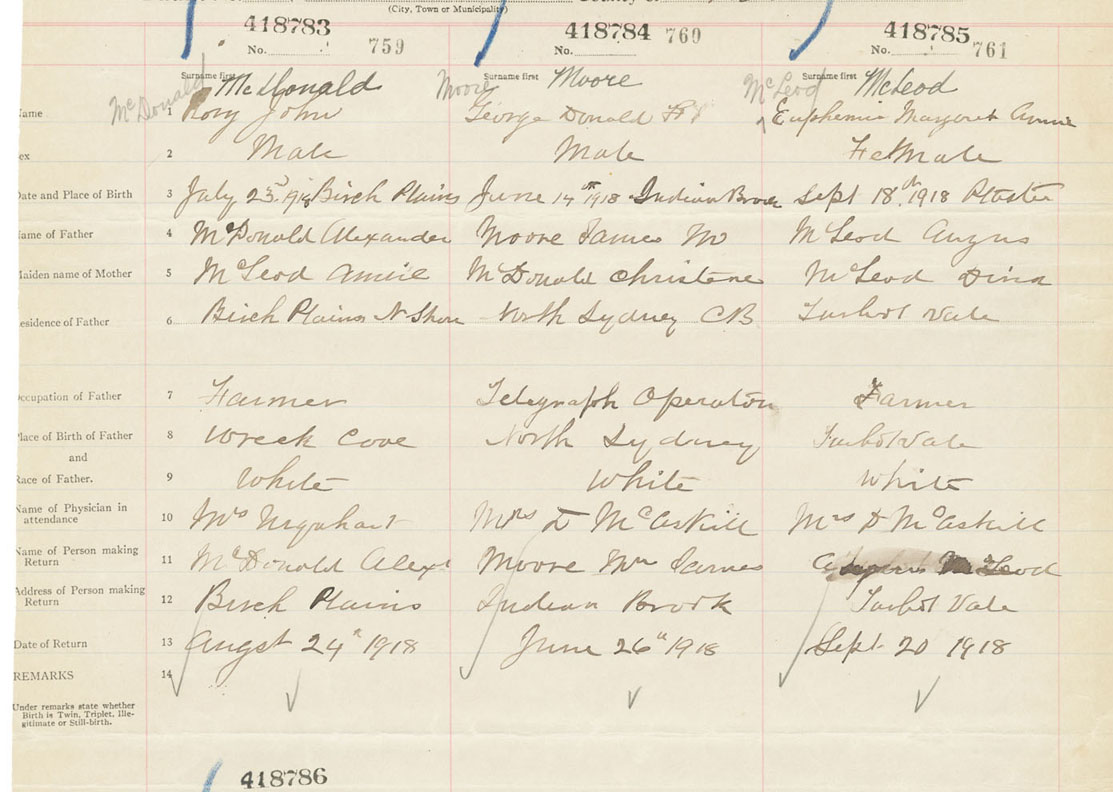 (City, Town or Municipality)
418783 418784 418785
No. 759 No. 760 No. 761
McDonald Surname first McDonald Moore Surname first Moore McLeod Surname first McLeod
ame 1 Rory John George Donald Euphemia Margaret Annie
ex 2 Male Male FeMale
Date and Place of Birth 3 July 23rd 1918 Birch Plains June 14th 1918 Indian Brook Sept 18th 1918 Plaster
ame of Father 4 McDonald Alexander Moore James M McLeod Angus
aiden name of Mother 5 McLeod Annie McDonald Christene McLeod Dina
esidence of Father 6 Birch Plains N. Shore North Sydney CB Tarbot Vale
ccupation of Father 7 Farmer Telegraph Operator Farmer
lace of Birth of Father 8 Wreck Cove North Sydney Tarbot Vale
and
ace of Father. 9 White White White
Name of Physician in
attendance 10 Mrs Urquhart Mrs D McAskill Mrs D McAskill
Name of Person making
Return 11 McDonald Alex Moore Mrs James McLeod
Address of Person making
Return 12 Birch Plains Indian Brook Tarbot Vale
Date of Return 13 Augst 24th 1918 June 26th 1918 Sept 20 1918
REMARKS 14
Under remarks state whether
Birth is Twin, Triplet, Ille-
gitimate or Still-birth.
418786